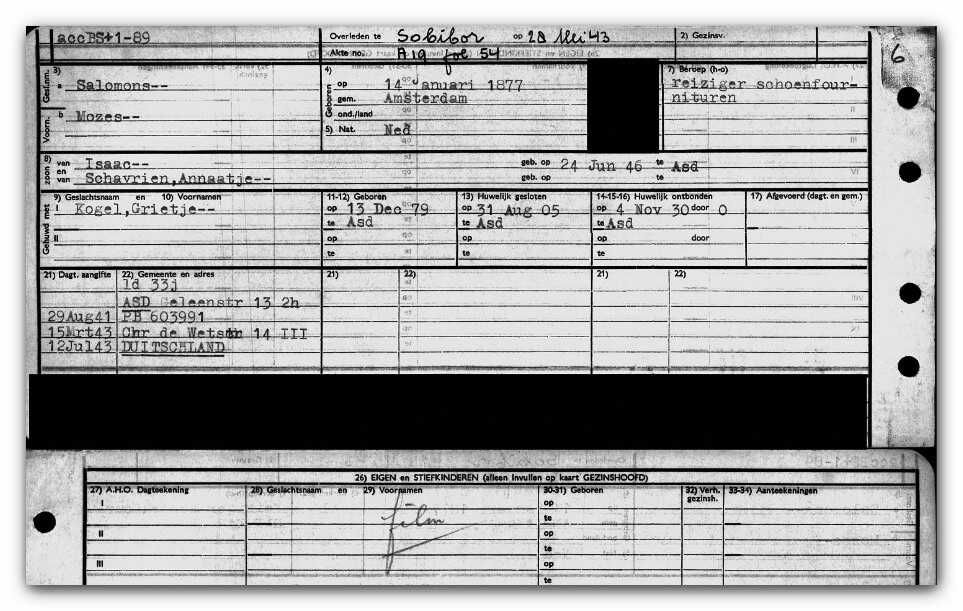 accBS+1-89
Overleden te Sobibor op 28 Mei 43
2) Gezinsv.
Akte no. A 19 fol 54
6
Geslacht. 3) a Salomons--
Voorn. b Mozes--
4) Geboren op 14 Januari 1877
gem. Amsterdam
ond./land
5) Nat. Ned
7) Beroep (h-o)
reiziger schoenfour-
nituren
8) zoon van Isaac-- geb. op 24 Jun 46 te Asd
en van Schavrien,Annaatje-- geb. op te
Gehuwd met 9) Geslachtsnaam en 10) Voornamen
I Kogel,Grietje--
II
11-12) Geboren
op 13 Dec 79
te Asd
op
te
13) Huwelijk gesloten
op 31 Aug 05
te Asd
op
te
14-15-16) Huwelijk ontbonden
op 4 Nov 30 door O
te Asd
op door
te
17) Afgevoerd (dagt. en gem.)
21) Dagt. aangifte 22) Gemeente en adres 21) 22) 21) 22)
ld 33j
ASD Geleenstr 13 2h
29Aug41 PB 603991
15Mrt43 Chr de Wetstr 14 III
12Jul43 DUITSCHLAND
26) EIGEN en STIEFKINDEREN (alleen invullen op kaart GEZINSHOOFD)
27) A.H.O. Dagteekening 28) Geslachtsnaam en 29) Voornamen 30-31) Geboren 32) Verh. gezinsh. 33-34) Aanteekeningen
I op
te
film
II op
te
III op
te